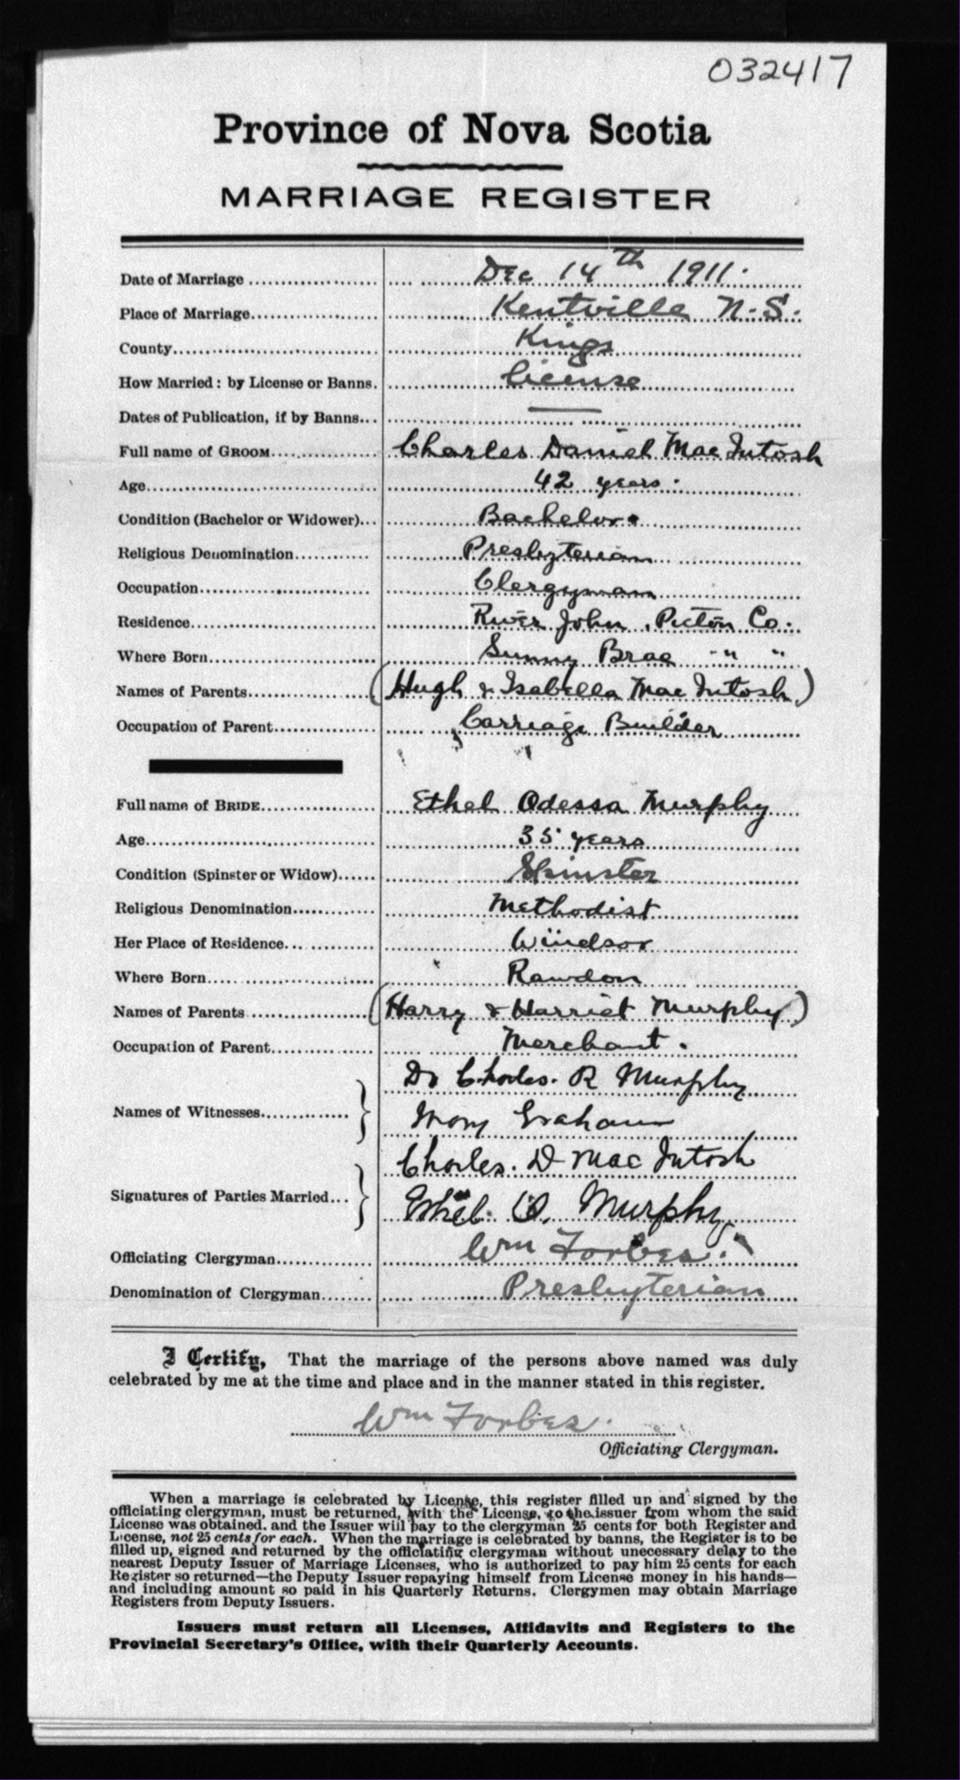 032417
Province of Nova Scotia
MARRIAGE REGISTER
Date of Marriage Dec 14th 1911.
Place of Marriage Kentville N.S.
County Kings
How Married: by License or Banns. License
Dates of Publication, if by Banns... —
Full name of GROOM Charles Daniel MacIntosh
Age 42 years.
Condition (Bachelor or Widower)... Bachelor.
Religious Denomination Presbyterian
Occupation Clergyman
Residence River John, Pictou Co.
Where Born Sunny Brae " "
Names of Parents (Hugh & Isabella MacIntosh)
Occupation of Parent Carriage Builder
Full name of BRIDE Ethel Odessa Murphy
Age 35 years
Condition (Spinster or Widow) Spinster
Religious Denomination Methodist
Her Place of Residence Windsor
Where Born Rawdon
Names of Parents (Harry & Harriet Murphy)
Occupation of Parent Merchant.
Dr Charles. R Murphy
Names of Witnesses
Mary Graham
Charles. D MacIntosh
Signatures of Parties Married
Ethel. O. Murphy
Officiating Clergyman Wm Forbes.
Denomination of Clergyman Presbyterian
I Certify, That the marriage of the persons above named was duly
celebrated by me at the time and place and in the manner stated in this register.
Wm Forbes.
Officiating Clergyman.
When a marriage is celebrated by License, this register filled up and signed by the
officiating clergyman, must be returned, with the License, to the issuer from whom the said
License was obtained, and the Issuer will pay to the clergyman 25 cents for both Register and
License, not 25 cents for each. When the marriage is celebrated by banns, the Register is to be
filled up, signed and returned by the officiating clergyman without unnecessary delay to the
nearest Deputy Issuer of Marriage Licenses, who is authorized to pay him 25 cents for each
Register so returned—the Deputy Issuer repaying himself from License money in his hands—
and including amount so paid in his Quarterly Returns. Clergymen may obtain Marriage
Registers from Deputy Issuers.
Issuers must return all Licenses, Affidavits and Registers to the
Provincial Secretary's Office, with their Quarterly Accounts.